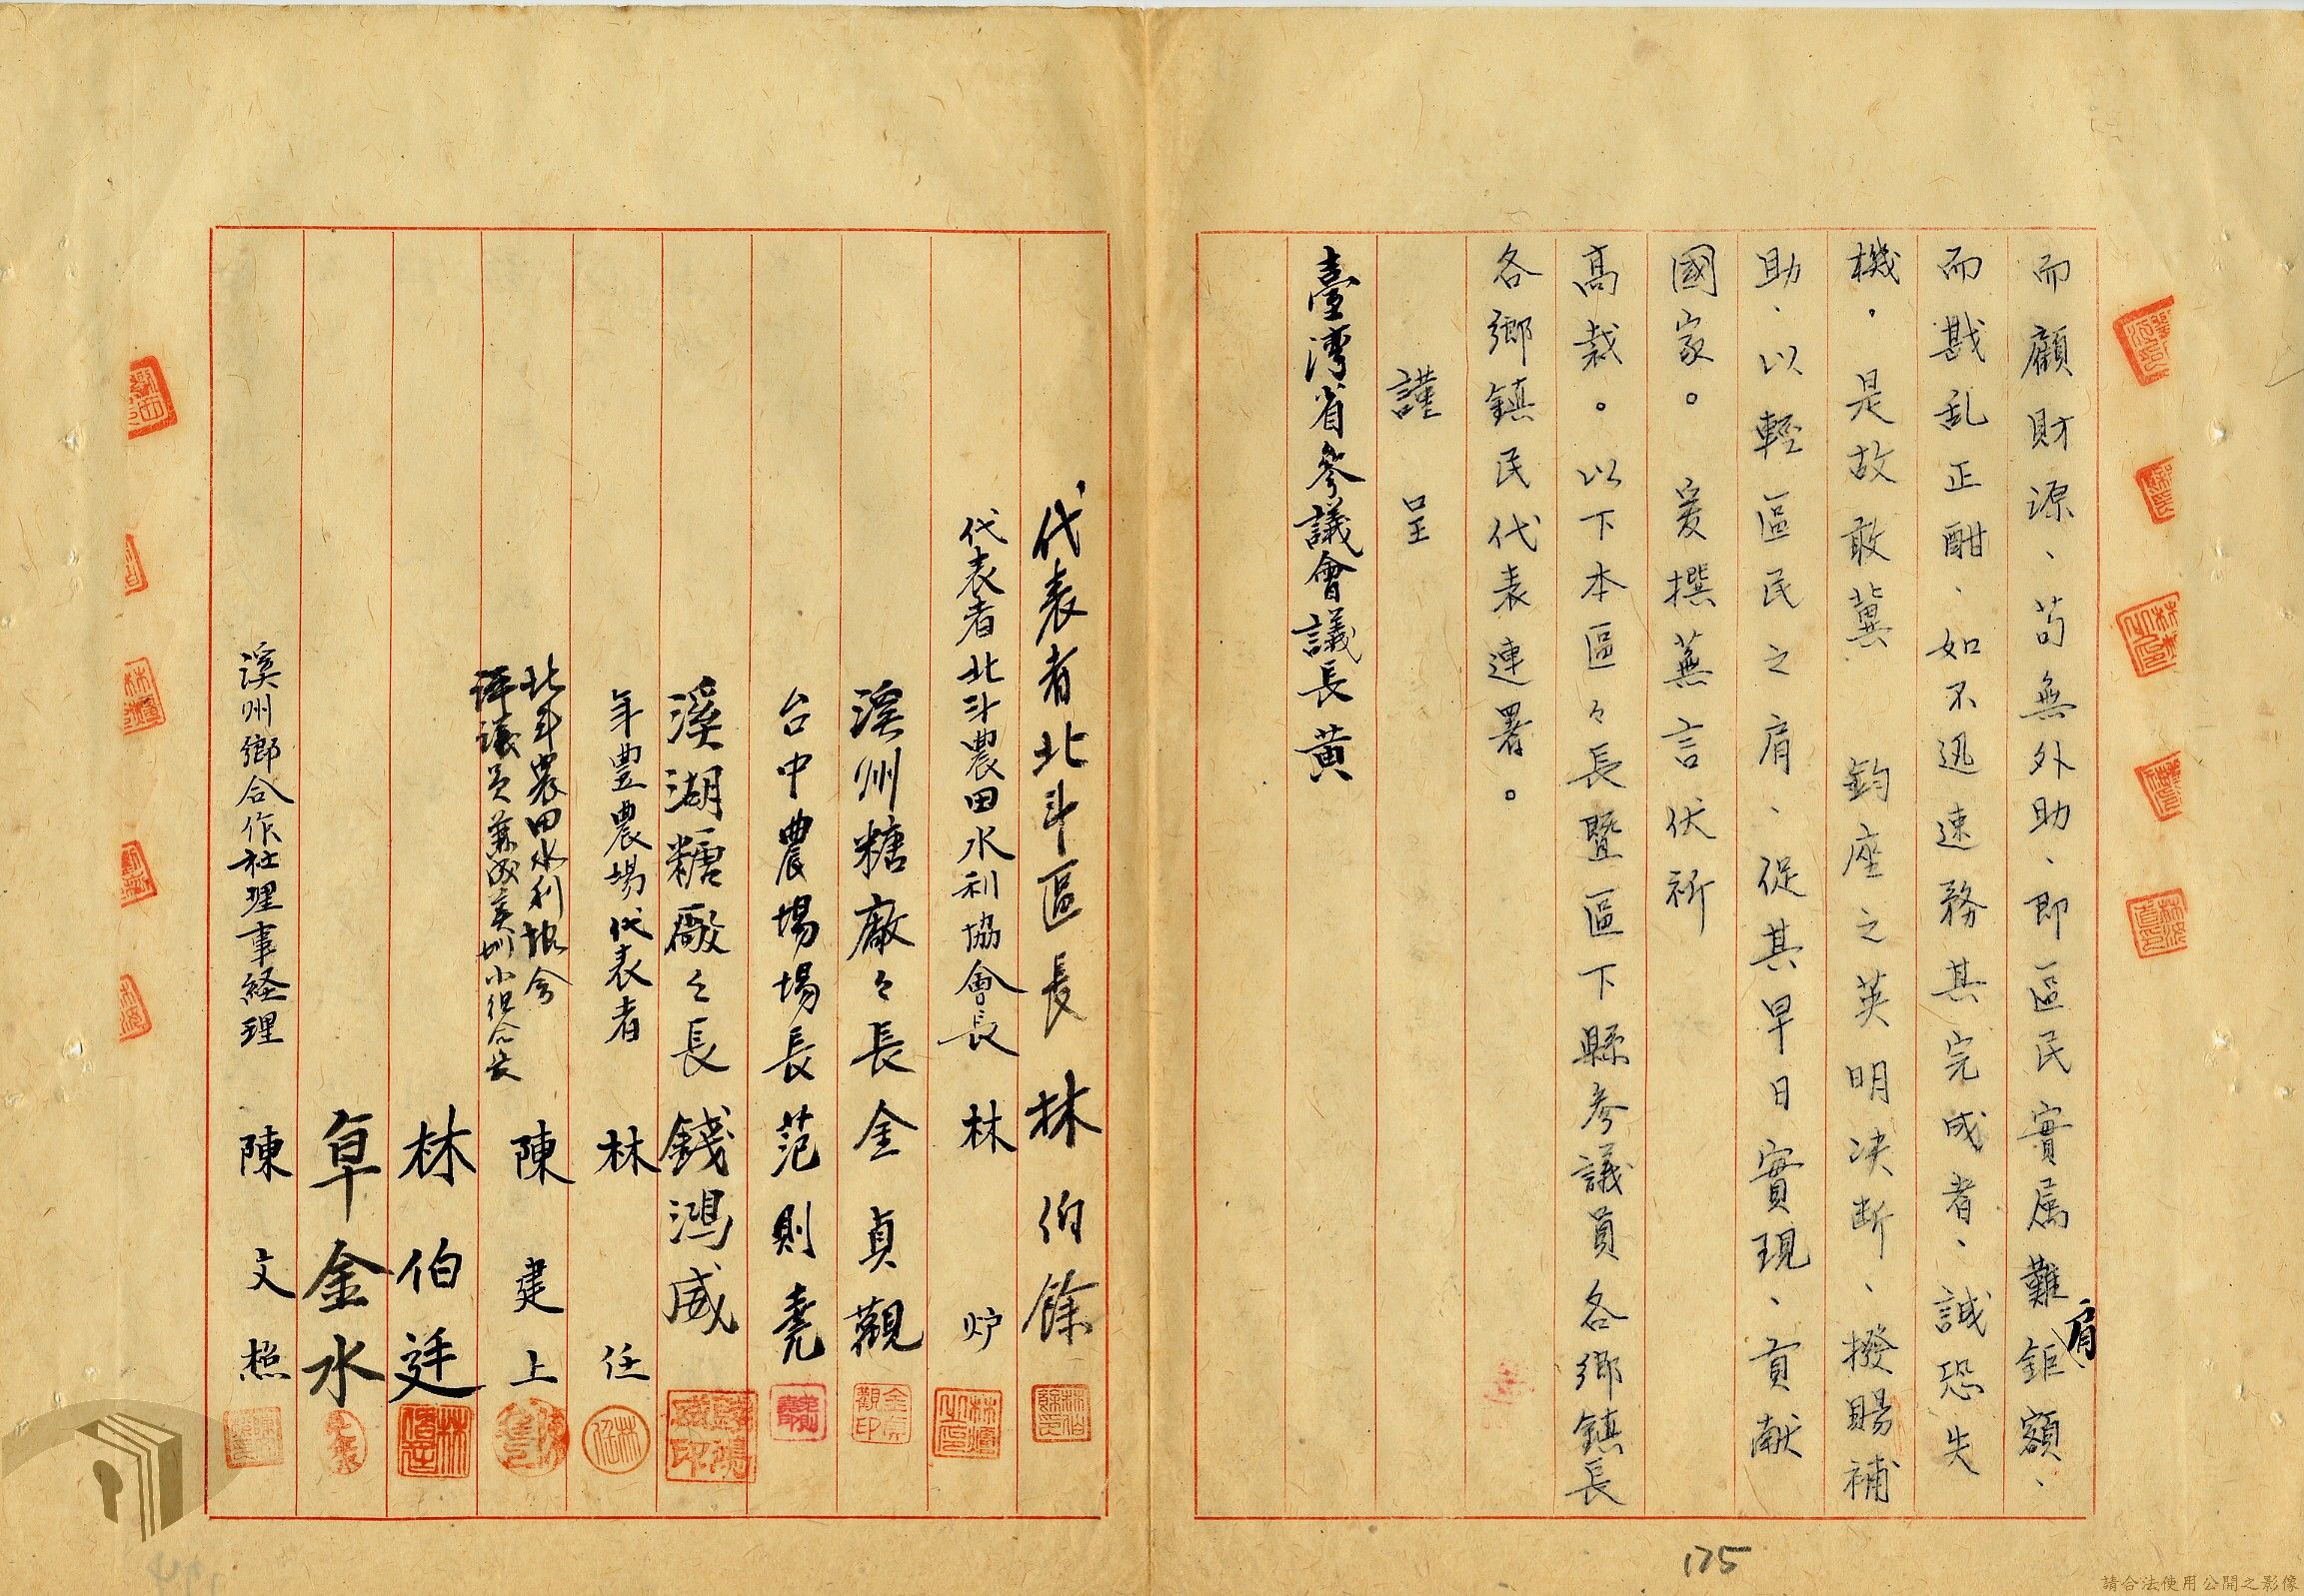 而顧財源、苟無外助、即區民實属難肩鉅額、
而戡乱正酣、如不迅速務其完成者、誠恐失
機。是故敢冀　鈞座之英明决断、撥賜補
助、以輕區民之肩、促其早日實現、貢献
國家。　爰撰蕪言伏祈
高裁。以下本區々長暨區下縣参議員各鄉鎮長
各鄉鎮民代表連署。
謹　呈
臺灣省參議會議長黄
代表者北斗區長　林伯餘
代表者北斗農田水利協會長　林炉
溪州糖廠々長　金貞觀
台中農場場長　范則堯
溪湖糖廠々長　錢鴻威
年豊農場代表者　林任
北斗農田水利協会
評議員　陳建上
林伯廷
卓金水
溪州鄉合作社理事経理　陳文照
175
請合法使用公開之影像